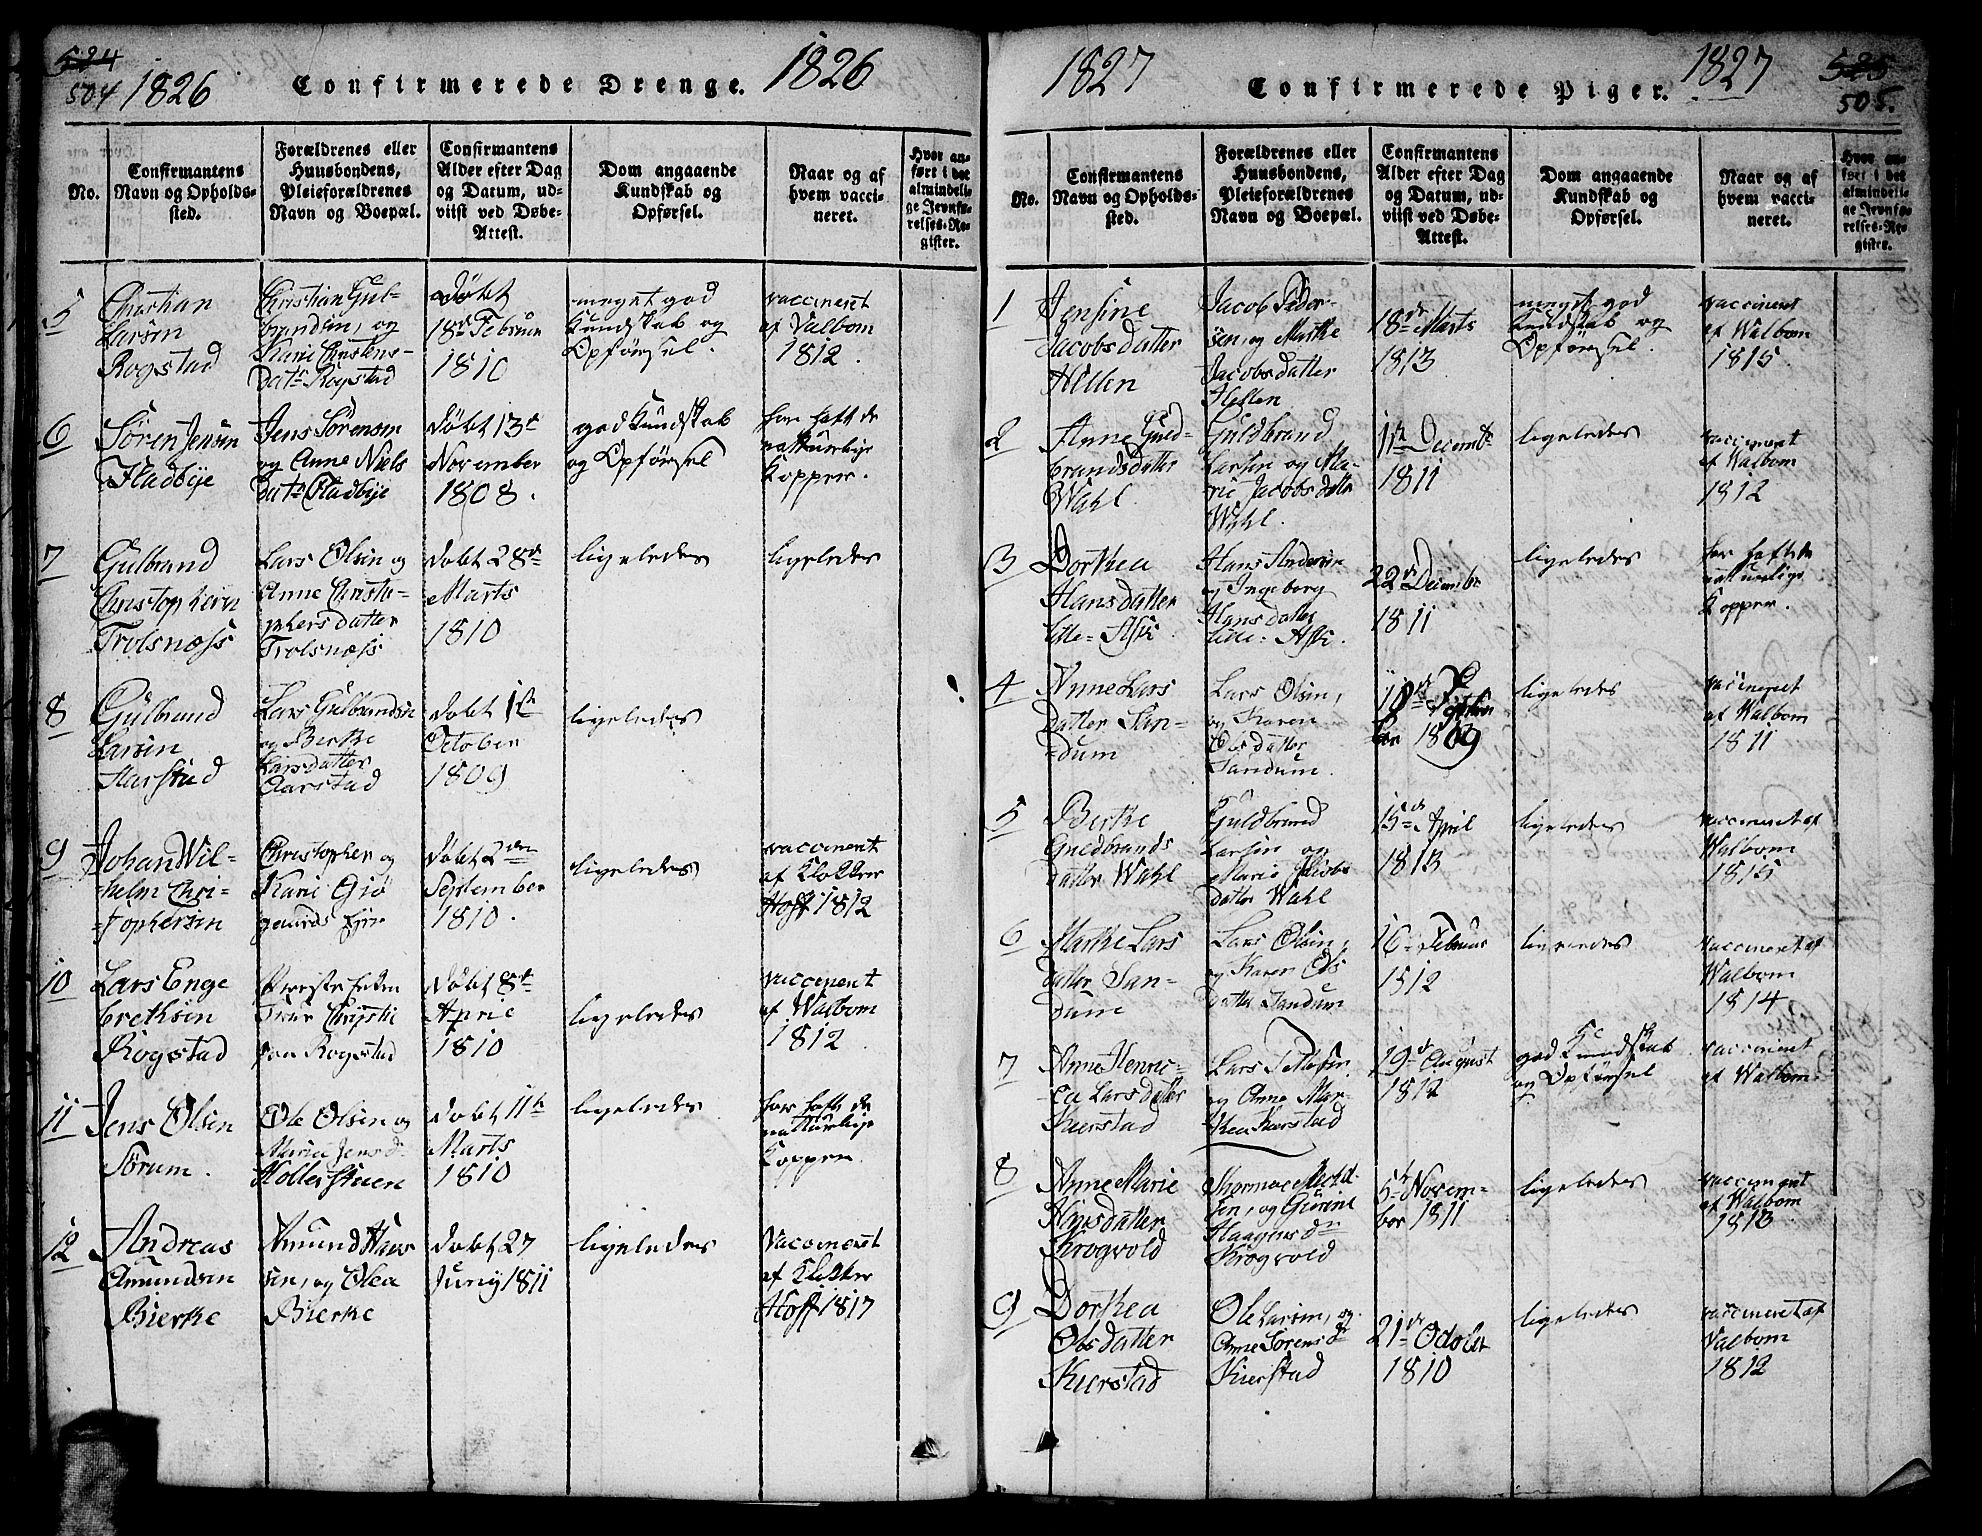 524
504 1826 Confirmerede Drenge. 1826
No.
Confirmantens
Navn og Opholds-
sted.
Forældrenes eller
Huusbondens,
Pleieforældrenes
Navn og Boepæl.
Confirmantens
Alder efter Dag
og Datum, ud-
viist ved Døbe-
Attest.
Dom angaaende
Kundskab og
Opførsel.
Naar og af
hvem vacci-
neret.
Hvor an-
ført i det
almindeli-
ge Jevnfø-
relses-Re-
gister.
5
Christian
Larsen
Rogstad
Christian Gul-
brandsen, og
Kari Christens-
datr Rogstad
Døbt
18de Februar
1810
meget god
Kundskab og
Opførsel.
vaccineret
af Valbom
1812.
6
Sören Jensen
Fladbye
Jens Sörensen
og Anne Niels
datr Fladbye
döbt 13de
November
1808.
god Kundskab
og Opförsel
har haft de
naturlige
Kopper.
7
Gulbrand
Christophersen
Trolsnæss
Lars Olsen og
Anne Christo-
phersdatter
Trolsnæss
döbt 28de
Marts
1810
ligeledes
ligeledes
8
Gülbrand
Larsen
Aarstad
Lars Gulbrandsen
og Berthe
Larsdatter
Aarstad
döbt 1te
October
1809
ligeledes
9
Johan Wil-
helm Chri-
stophersen
Christopher og
Kari
döbt 2den
September
1810.
ligeledes
vaccineret
af Klokker
Hoff 1812
10
Lars Enge
brethsen
Rogstad
paa Rogstad
döbt 8de
April
1810
ligeledes
vaccineret
af Walbom
1812.
11
Jens Olsen
Sörum.
Ole Olsen og
Maria Jensd.
Hollerstuen
döbt 11te
Marts
1810
ligeledes
har haft de
natturlige
Kopper
12
Andreas
Amundsen
Bierke
Amund Han-
sen, og Olea
Bierke
döbt 27
Juny 1811
ligeledes
Vaccineret
af Klokker
Hoff 1817
1827 Confirmerede Piger. 1827 525
505.
No.
Confirmantens
Navn og Opholds-
sted.
Forældrenes eller
Huusbondens,
Pleieforældrenes
Navn og Boepæl.
Confirmantens
Alder efter Dag
og Datum, ud-
viist ved Døbe-
Attest.
Dom angaaende
Kundskab og
Opførsel.
Naar og af
hvem vacci-
neret.
Hvor an-
ført i det
almindeli-
ge Jevnfø-
relses-Re-
gister.
1
Jensine
Jacobsdatter
Hellen
Jacob Peder-
sen, og Marthe
Jacobsdatter
Hellen
18de Marts
1813
meget god
Kundskab og
Opførsel.
vaccineret
af Walbom
1815.
2
Anne Guld-
brandsdatter
Wahl.
Guldbrand
Larsen og Ma-
rie Jacobsdatter
Wahl.
11te Decembr
1811
ligeledes
vaccineret
af Walbom
1812
3
Dorthea
Hansdatter
Lille-Ask
Hans Andersen
og Ingeborg
Hansdatter
Lille-Ask.
22de Decembr
1811
ligeledes
har haft de
naturlige
Kopper.
4
Anne Lars
datter San-
dum
Lars Olsen,
og Karen
Olsdatter
Sandum.
10de Septem
ber 1809
ligeledes
vaccineret
af Walbom
1811
5
Berthe
Guldbrands
datter Wahl
Guldbrand
Larsen og
Marie Jacobs
datter Wahl
15de April
1813
ligeledes
vaccineret af
Walbom
1815
6
Marthe Lars
datter San-
dum
Lars Olsen,
og Karen Ols
datter Sandum
16 Februar
1812
ligeledes
vaccineret af
Walbom
1814
7
Anne Henric-
ca Larsdatter
Kierstad
Lars
og Anne Mar-
thea Kierstad
19de August
1812
god Kundskab
og Opførsel
vaccineret
af Walbom.
8
Anne Marie
Krogvold
sen, og Gurine
Haagensdr
Krogvold
5te Novem-
ber 1811
ligeledes
vaccineret
af Walbom
1813.
9
Dorthea
Olsdatter
Kierstad
Ole Larsen, og
Anne Sörensdr
Kierstad
21de October
1810
ligeledes
vaccineret af
Valbom
1812